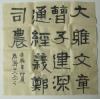 大雅文章
曹子建深
通經義鄭
司農